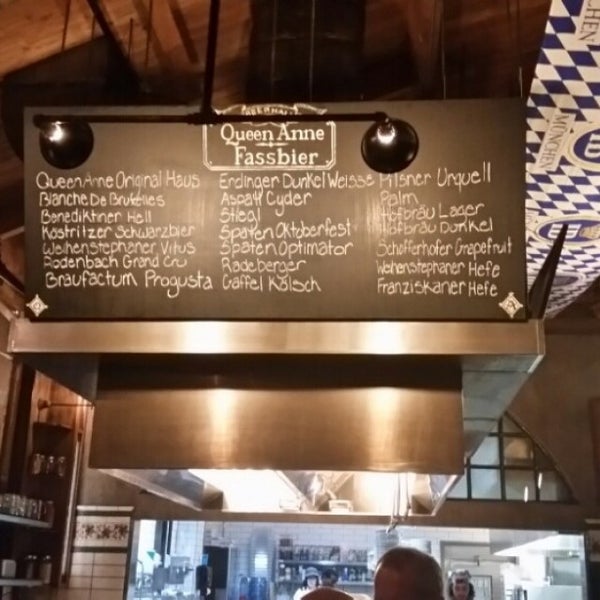 BEERHALL
Queen Anne
Fassbier
Queen Anne Original Haus
Blanche De Bruxelles
Benediktiner Hell
Kostritzer Schwarzbier
Weihenstephaner Vitus
Rodenbach Grand Cru
Braufactum Progusta
Erdinger Dunkel Weisse
Aspall Cyder
Stiegl
Spaten Oktoberfest
Spaten Optimator
Radeberger
Gaffel Kölsch
Pilsner Urquell
Palm
Hofbräu Lager
Hofbräu Dunkel
Schofferhofer Grapefruit
Weihenstephaner Hefe
Franziskaner Hefe
MÜNCHEN
MÜNCHEN